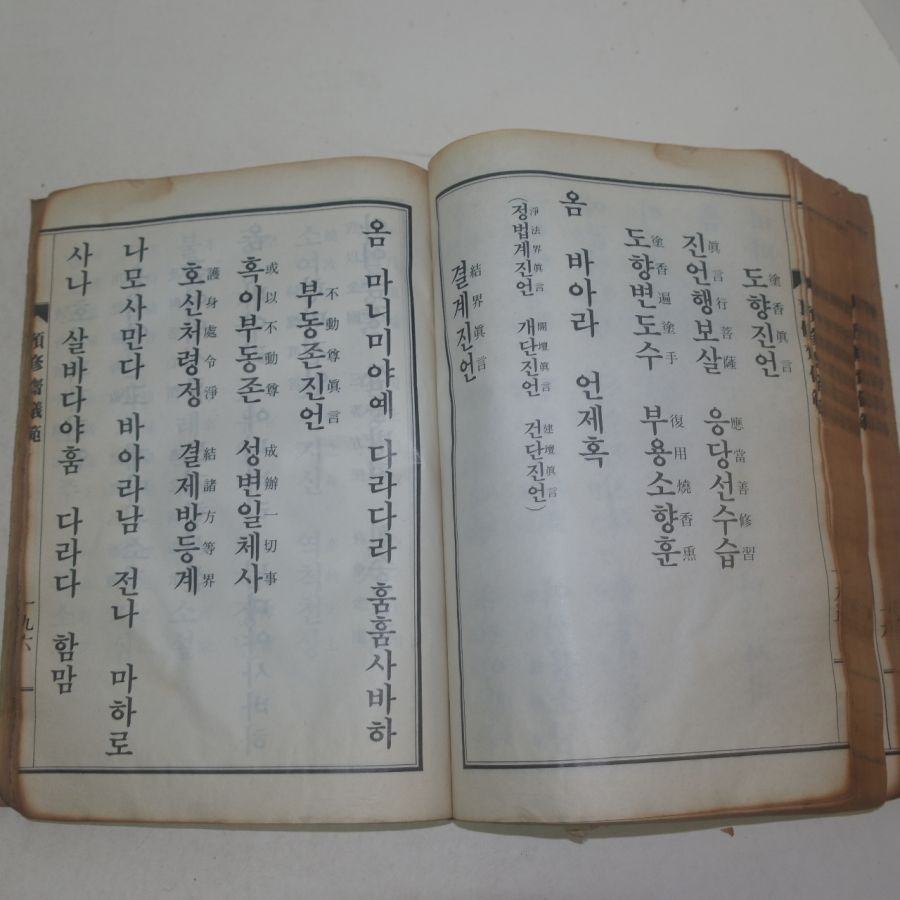 도향진언 塗香眞言
진언행보살 응당선수습 眞言行菩薩 應當善修習
도향변도수 부용소향훈 塗香遍塗手 復用燒香熏
옴 바아라 언제혹
(정법계진언 개단진언 건단진언) 淨法界眞言 開壇眞言 建壇眞言
결계진언 結界眞言
옴 마니미야예 다라다라 훔훔사바하
부동존진언 不動尊眞言
혹이부동존 성변일체사 或以不動尊 成辦一切事
호신처령정 결제방등계 護身處令淨 結諸方等界
나모사만다 바아라남 전나 마하로
사나 살바다야훔 다라다 함맘
預修齋儀範
一九六